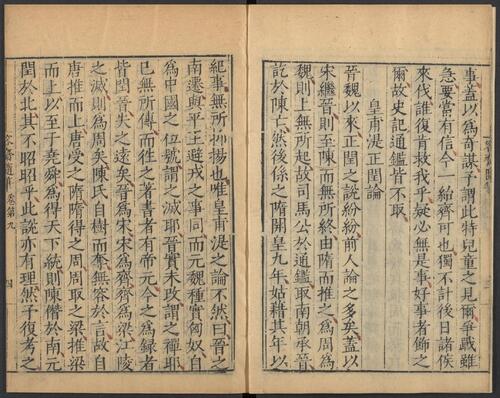 事蓋以為奇謀子謂此特兒童之見爾爭戰雖
急要當有信今一紿齊可也獨不計後日諸侯
來伐誰復肯救我乎疑必無是事好事者飾之
爾故史記通鑑皆不取
皇甫湜正閏論
晉魏以來正閏之說紛紛前人論之多矣蓋以
宋繼晉則至陳而無所終由隋而推之為周為
魏則上無所起故司馬公於通鑑取南朝承晉
訖於陳亡然後係之隋開皇九年姑藉其年以
紀事無所抑揚也唯皇甫湜之論不然曰晉之
南遷與平王避戎之事同而元魏種實匈奴自
為中國之位號謂之滅耶晉實未改謂之禪耶
已無所傳而往之著書者有帝元今之為錄者
皆閏晉失之遠矣晉為宋宋為齊齊為梁江陵
之滅則為周矣陳氏自樹而奪無容於言故自
唐推而上唐受之隋隋得之周周取之梁推梁
而上以至于堯舜為得天下統則陳僭於南元
閏於北其不昭昭乎此說亦有理然予復考之
容齋隨筆 卷第九
四